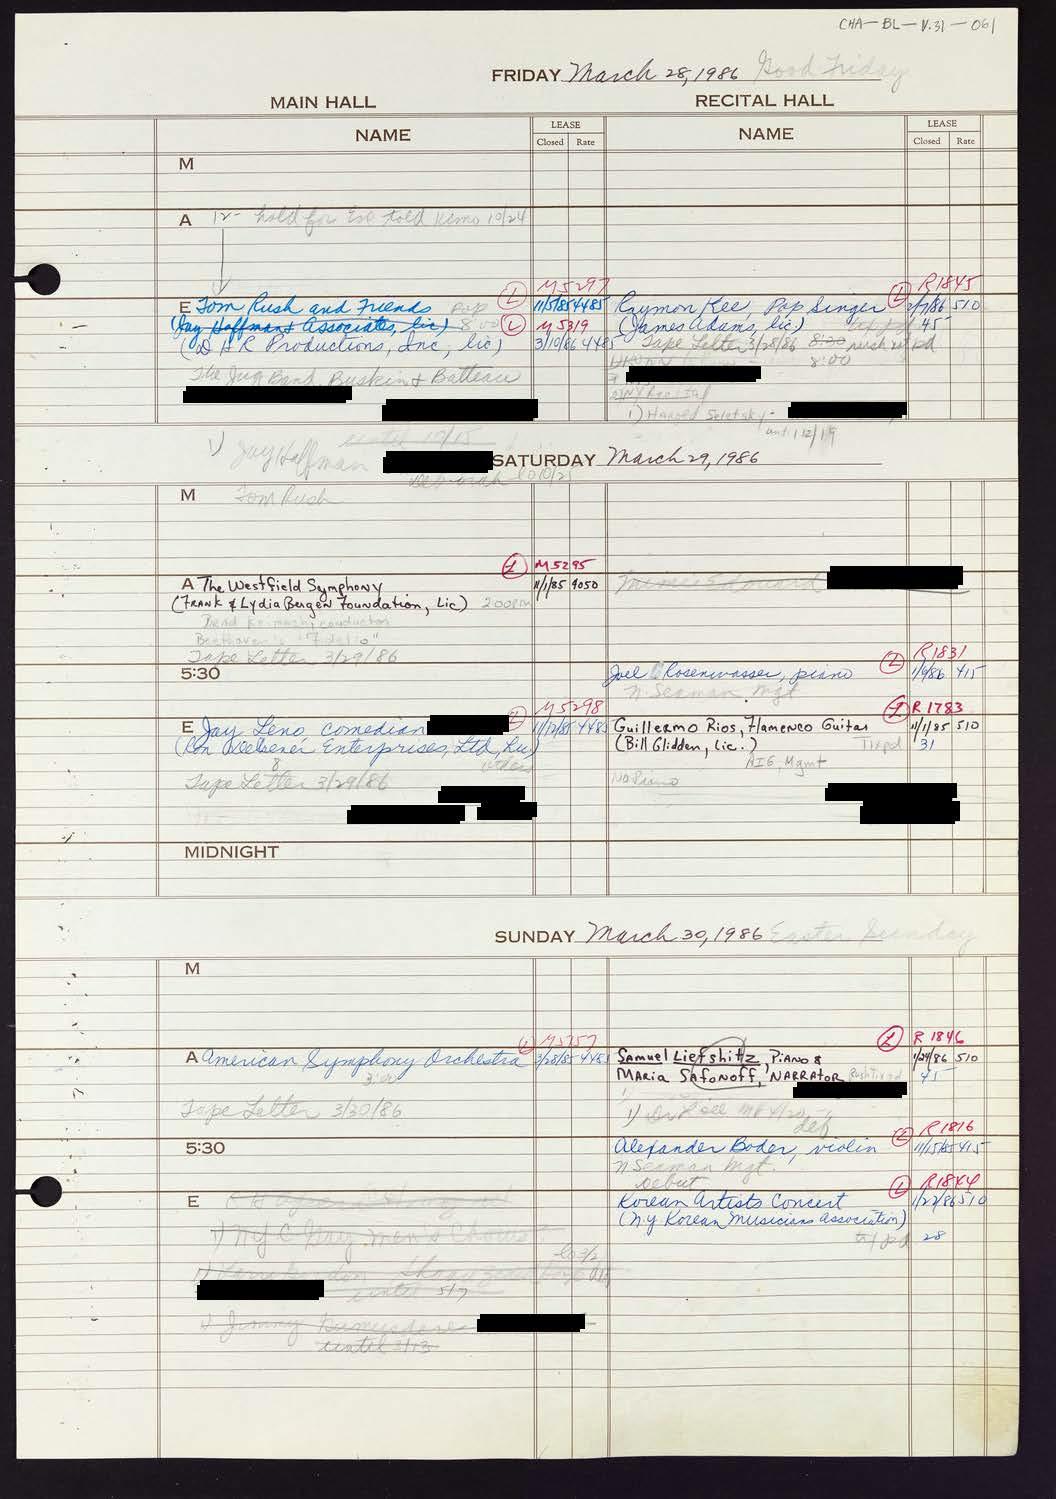 CHA-BL-V.31-061
FRIDAY March 28, 1986 Good Friday
MAIN HALL
RECITAL HALL
NAME
LEASE
Closed Rate
NAME
LEASE
Closed Rate
M
A 12- hold for Eve told 10/24
M5297
E Tom Rush and Friends Pop L 11/5/85 4485
(Jay Hoffman & Associates, lic) 8:00 L M5319
(D H R Productions, Inc, lic) 3/10/86 4485
The Jug Band, Buskin & Batteau
R1845
Raymon Kee, Pop Singer L 510
(James Adams, lic.) 45
Tape Letter 3/28/86 8:30 pd
8:00
NY Recital
1) Harold
until 12/19
until 10/15
1) Jay Hoffman
Deborah
SATURDAY March 29, 1986
M Tom Rush
L M5295
A The Westfield Symphony 11/1/85 4050
(Frank & Lydia Bergen Foundation, Lic) 2:00 PM
conductor
Beethoven's "Fidelio"
Tape Letter 3/29/86
5:30
R1831
Joel Rosenwasser, piano L 1/9/86 415
N. Seaman Mgt
M5298
E Jay Leno, comedian L 11/12/85 4485
(Ron Delsener Enterprises, Ltd, Lic)
8
Tape Letter 3/29/86
L R1783
Guillermo Rios, Flamenco Guitar 11/1/85 510
(Bill Glidden, Lic.) Tx pd 31
AIG, Mgmt
No Piano
MIDNIGHT
SUNDAY March 30, 1986 Easter Sunday
M
L
A American Symphony Orchestra 3/28/85
3:00
Tape Letter 3/30/86
L R1846
Samuel Liefshitz, Piano & 1/24/86 510
Maria Safonoff, Narrator 45
1)
def
5:30
R1816
Alexander Boder, violin L 11/15/85 415
N Seaman Mgt.
Debut
E
L R1844
Korean Artists Concert 1/22/86 510
(N.Y. Korean Musicians Association)
tx pd 28
1) NYC Gay Men's Chorus
until 5/7
1) Jimmy
until 3/13